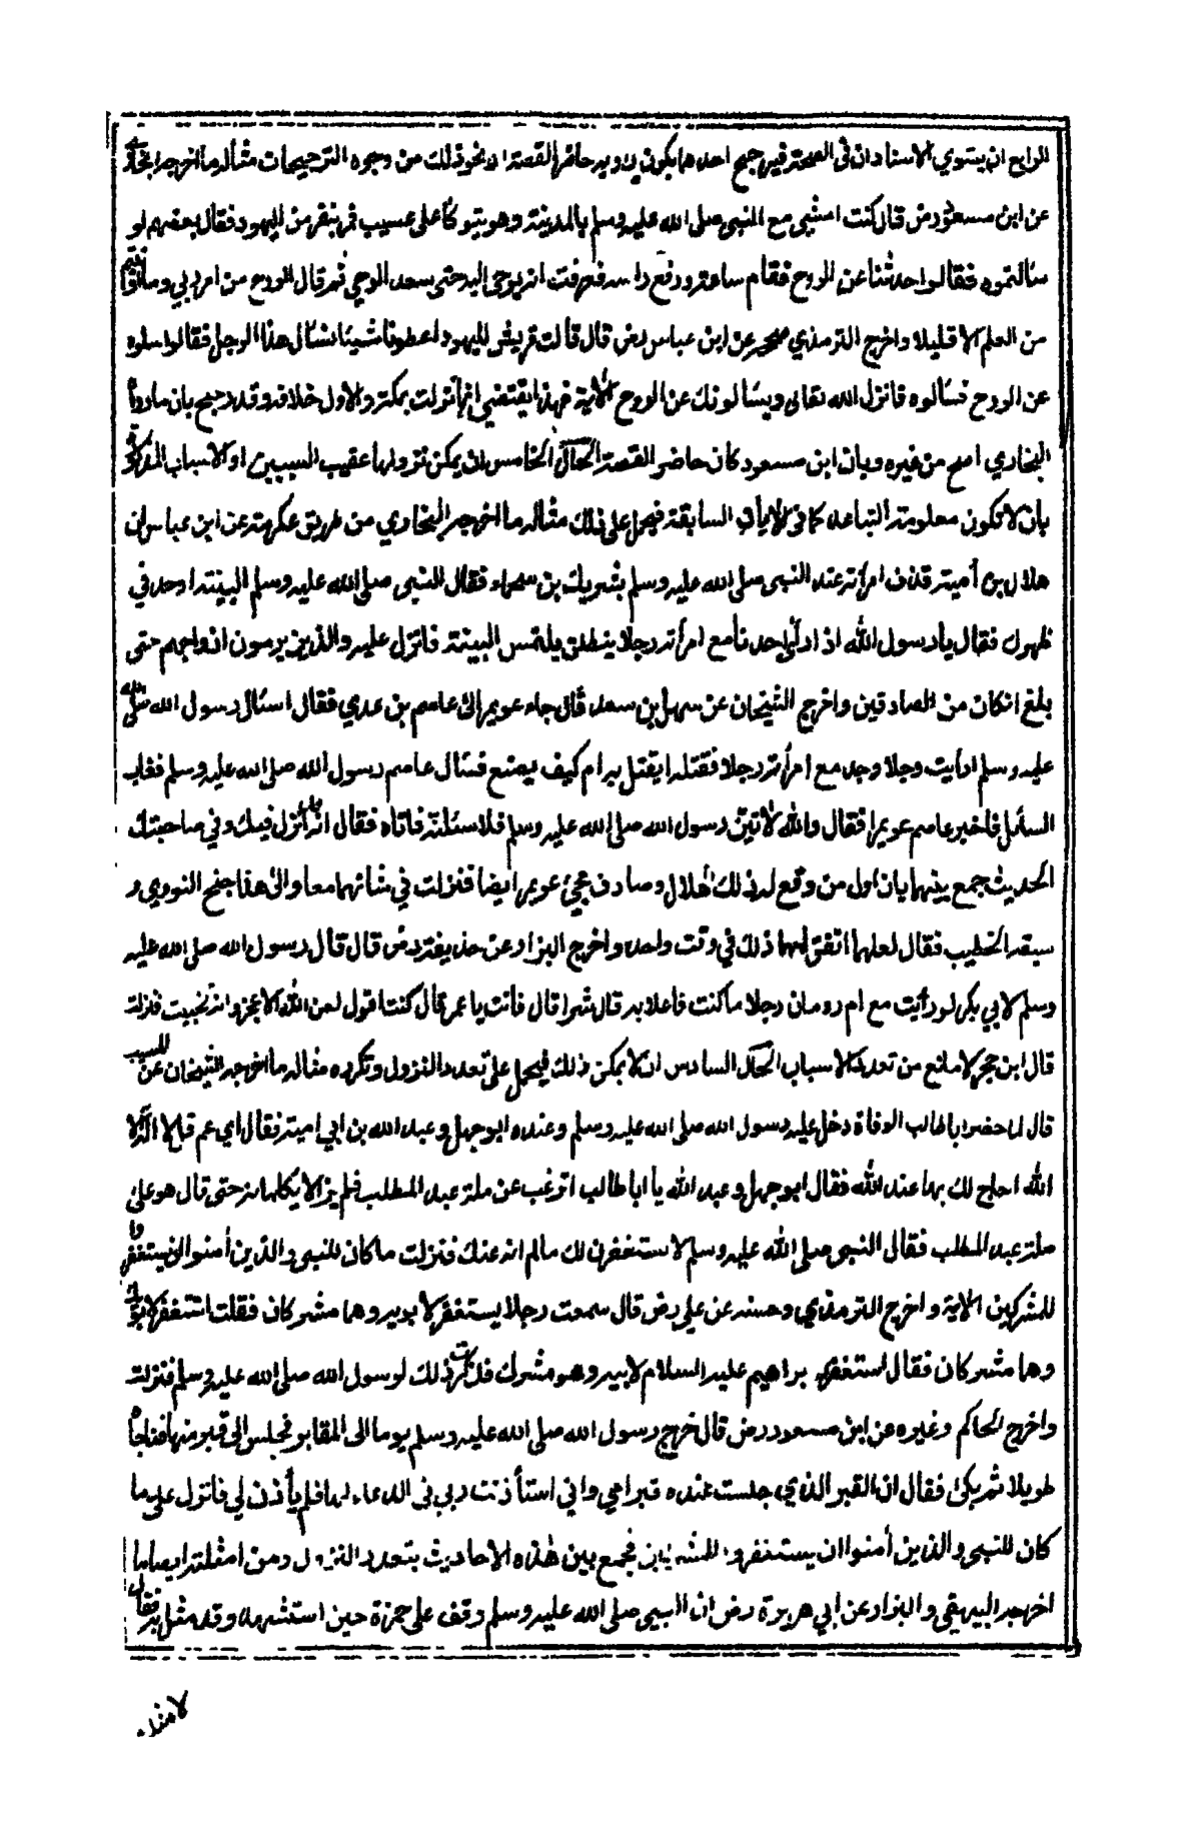 الرابع ان يستوي الاسنادان في الصحة فيرجح احدهما بكون راويه حاضر القصة او نحو ذلك من وجوه الترجيحات مثاله ما اخرجه البخاري
عن ابن مسعود رض قال كنت امشي مع النبي صلى الله عليه وسلم بالمدينة وهو يتوكأ على عسيب فمر بنفر من اليهود فقال بعضهم لو
سألتموه فقالوا حدثنا عن الروح فقام ساعة ورفع راسه فعرفت انه يوحى اليه حتى سعد الوحي ثم قال الروح من امر ربي وما اوتيتم
من العلم الا قليلا واخرج الترمذي وصححه عن ابن عباس رض قال قالت قريش لليهود اعطونا شيئا نسأل هذا الرجل فقالوا سلوه
عن الروح فسألوه فانزل الله تعالى ويسألونك عن الروح الآية فهذا يقتضي انها نزلت بمكة والاول خلافه وقد رجح بان ما رواه
البخاري اصح من غيره وبان ابن مسعود كان حاضر القصة الحال الخامس ان يمكن نزولها عقيب السببين او الاسباب المذكورة
بان لا تكون معلومة التباعد كما في الايات السابقة فيحمل على ذلك مثاله ما اخرجه البخاري من طريق عكرمة عن ابن عباس ان
هلال بن أمية قذف امرأته عند النبي صلى الله عليه وسلم بشريك بن سحماء فقال النبي صلى الله عليه وسلم البينة او حد في
ظهرك فقال يا رسول الله اذا رأى احدنا مع امرأته رجلا ينطلق يلتمس البينة فانزل عليه والذين يرمون ازواجهم حتى
بلغ ان كان من الصادقين واخرج الشيخان عن سهل بن سعد قال جاء عويمر الى عاصم بن عدي فقال اسئال رسول الله صلى الله
عليه وسلم ارأيت رجلا وجد مع امرأته رجلا فقتله ايقتل به ام كيف يصنع فسئال عاصم رسول الله صلى الله عليه وسلم فعاب
السائل فاخبر عاصم عويمرا فقال والله لاتين رسول الله صلى الله عليه وسلم فلاسئلنه فاتاه فقال انه انزل فيك وفي صاحبتك
الحديث جمع بينهما بان اول من وقع له ذلك هلال وصادف مجيئ عويمر ايضا فنزلت في شانهما معا والى هذا جنح النووي و
سبقه الخطيب فقال لعلهما اتفق لهما ذلك في وقت واحد واخرج البزار عن حذيفة رض قال قال رسول الله صلى الله عليه
وسلم لابي بكر لو رأيت مع ام رومان رجلا ما كنت فاعلا به قال شرا قال فانت يا عمر قال كنت اقول لعن الله الاعجز وانه لخبيث فنزلت
قال ابن حجر لا مانع من تعدد الاسباب الحال السادس ان لا يمكن ذلك فيحمل على تعدد النزول وتكرره مثاله ما اخرجه الشيخان عن المسيب
قال لما حضر ابا طالب الوفاة دخل عليه رسول الله صلى الله عليه وسلم وعنده ابو جهل وعبد الله بن ابي امية فقال اي عم قل لا اله الا
الله احاج لك بها عند الله فقال ابو جهل وعبد الله يا ابا طالب اترغب عن ملة عبد المطلب فلم يزالا يكلمانه حتى قال هو على
ملة عبد المطلب فقال النبي صلى الله عليه وسلم لاستغفرن لك مالم انه عنك فنزلت ما كان للنبي والذين أمنوا ان يستغفروا
للمشركين الاية واخرج الترمذي وحسنه عن علي رض قال سمعت رجلا يستغفر لابويه وهما مشركان فقلت اتستغفر لابويك
وهما مشركان فقال استغفر ابراهيم عليه السلام لابيه وهو مشرك فذكرت ذلك لرسول الله صلى الله عليه وسلم فنزلت
واخرج الحاكم وغيره عن ابن مسعود رض قال خرج رسول الله صلى الله عليه وسلم يوما الى المقابر فجلس الى قبر منها فناجاه
طويلا ثم بكى فقال ان القبر الذي جلست عنده قبر امي واني استأذنت ربي في الدعاء لها فلم يأذن لي فانزل علي ما
كان للنبي والذين أمنوا ان يستغفروا للمشركين فجمع بين هذه الاحاديث بتعدد النزول ومن امثلته ايضا ما
اخرجه البيهقي والبزار عن ابي هريرة رض ان النبي صلى الله عليه وسلم وقف على حمزة حين استشهد وقد مثل به فقال
لامثلن